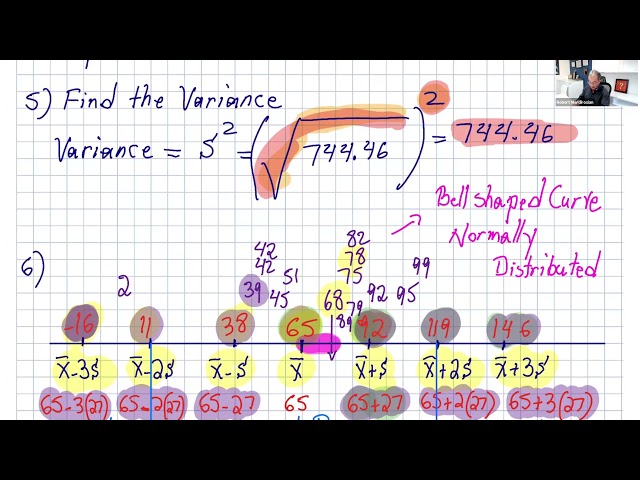 5) Find the Variance
Variance = S² = (√744.46)² = 744.46
Bell shaped Curve
Normally
Distributed
6)
2
42
42
39
51
45
82
78
75
68
79
89
92
95
99
-16 11 38 65 92 119 146
x̄-3s x̄-2s x̄-s x̄ x̄+s x̄+2s x̄+3s
65-3(27) 65-2(27) 65-27 65 65+27 65+2(27) 65+3(27)